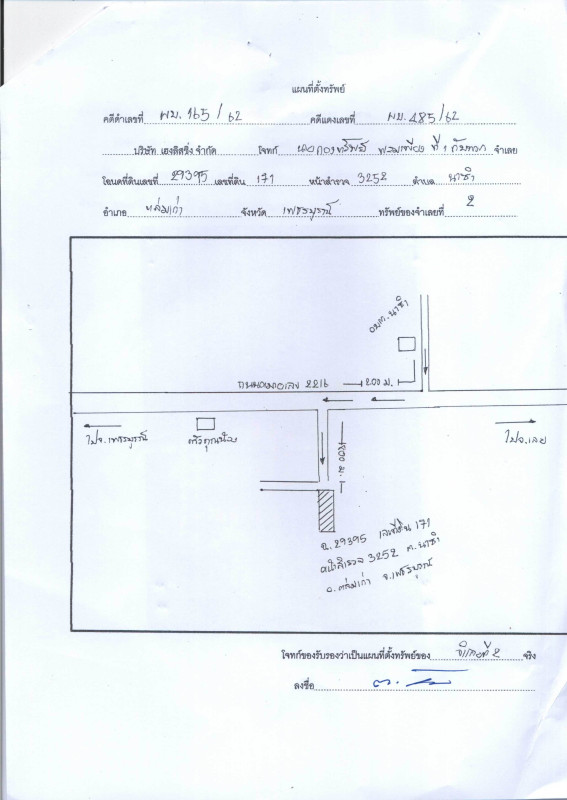 แผนที่ตั้งทรัพย์
คดีดำเลขที่ ผบ.165/62 คดีแดงเลขที่ ผบ.485/62
บริษัท เฮงลิสซิ่ง จำกัด โจทก์ ที่ 1 กับพวก จำเลย
โฉนดที่ดินเลขที่ 29395 เลขที่ดิน 171 หน้าสำรวจ 3252 ตำบล นาซำ
อำเภอ หล่มเก่า จังหวัด เพชรบูรณ์ ทรัพย์ของจำเลยที่ 2
อบต.นาซำ
ถนนหมายเลข 2216 200 ม.
ไปจ.เพชรบูรณ์
ไปจ.เลย
800 ม.
ฉ.29395 เลขที่ดิน 171
หน้าสำรวจ 3252 ต.นาซำ
อ.หล่มเก่า จ.เพชรบูรณ์
โจทก์ของรับรองว่าเป็นแผนที่ตั้งทรัพย์ของ จำเลยที่ 2 จริง
ลงชื่อ